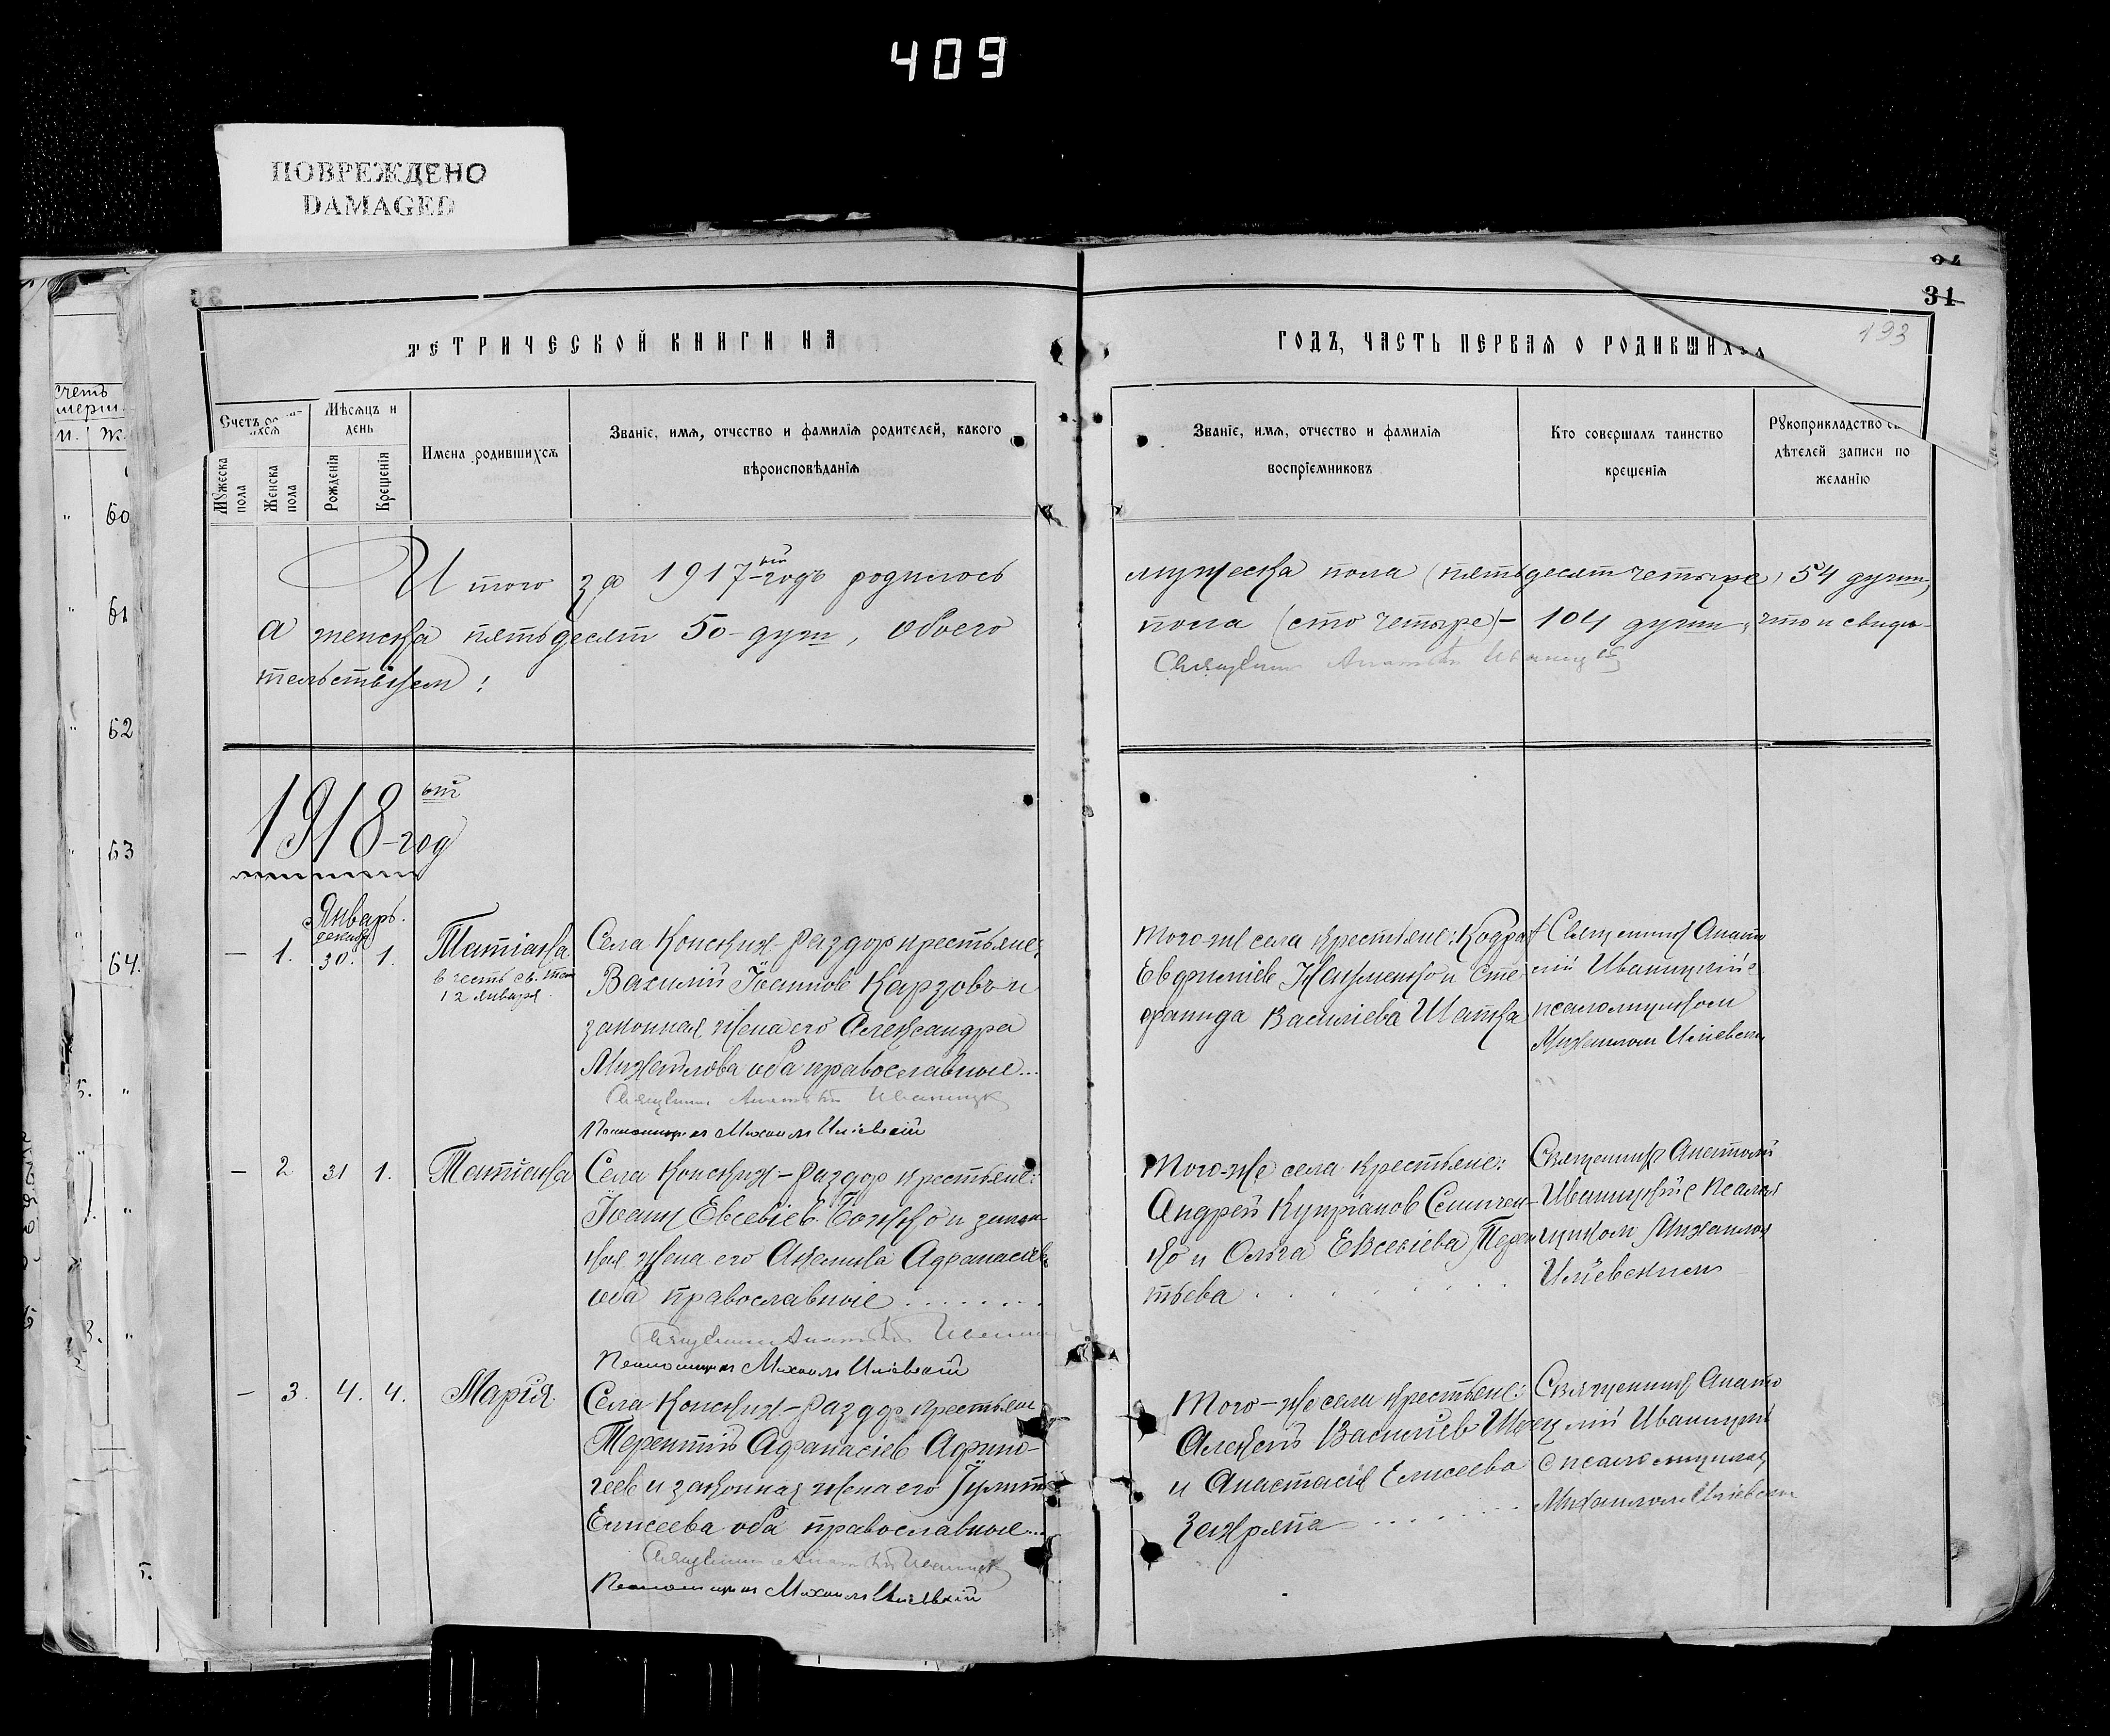 409
ПОВРЕЖДЕНО
DAMAGED
34
31
193
МЕТРИЧЕСКОЙ КНИГИ НА
ГОДЪ, ЧАСТЬ ПЕРВАЯ О РОДИВШИХСЯ
Счетъ
Мѣсяцъ и день
Имена родившихся
Званіе, имя, отчество и фамилія родителей, какого вѣроисповѣданія
Мужеска пола
Женска пола
Рожденія
Крещенія
Званіе, имя, отчество и фамилія воспріемниковъ
Кто совершалъ таинство крещенія
Рукоприкладство
дѣтелей записи по желанію
счетъ
м. ж.
60
61
62
63
64.
Итого за 1917-ый годъ родилось мужеска пола (пятьдесят четыре) 54 душ,
а женска пятьдесят 50-душ, обоего пола (сто четыре)- 104 душ, что и свидѣ-
тельствуем:
Священник Анатолій Иваницкій
1918-ый год
Январь.
декабр
— 1. 30. 1. Татіана
в честь св.
12 января.
Села Конских-Раздор крестьяне:
Василій Іоаннов Карзовъ и
законная жена его Александра
Михайлова оба православные...
Священник Анатолій Иваницкій
Псаломщик Михаил Иліевскій
Того-же села крестьяне: Кодрат
Евфиміев и Сте
фанида Васильева
Священник Анато
лій Иваницкій с
псаломщиком
Михаилом Иліевским
— 2 31 1. Татіана
Села Конских-Раздор крестьяне:
Іоанн Евсевіев Божко и закон-
ная жена его Акилина Афанасіева
оба православные........
Священник Анатолій Иваницкій
Псаломщик Михаил Иліевскій
Того-же села крестьяне:
Андрей Купріанов Семичен-
ко и Ольга Евсевіева Терен
тьева
Священник Анатолій
Иваницкій с псалом
щиком Михаилом
Иліевским
— 3. 4. 4. Марія.
Села Конских-Раздор крестьяне
Терентій Афанасіев Афино-
геев и законная жена его Іулитта
Елисеева оба православные...
Священник Анатолій Иваницкій
Псаломщик Михаил Иліевскій
Того-же села крестьяне:
Алексей Васильев Швец
и Анастасія Елисеева
Священник Анато
лій Иваницкій
с псаломщиком
Михаилом Иліевским